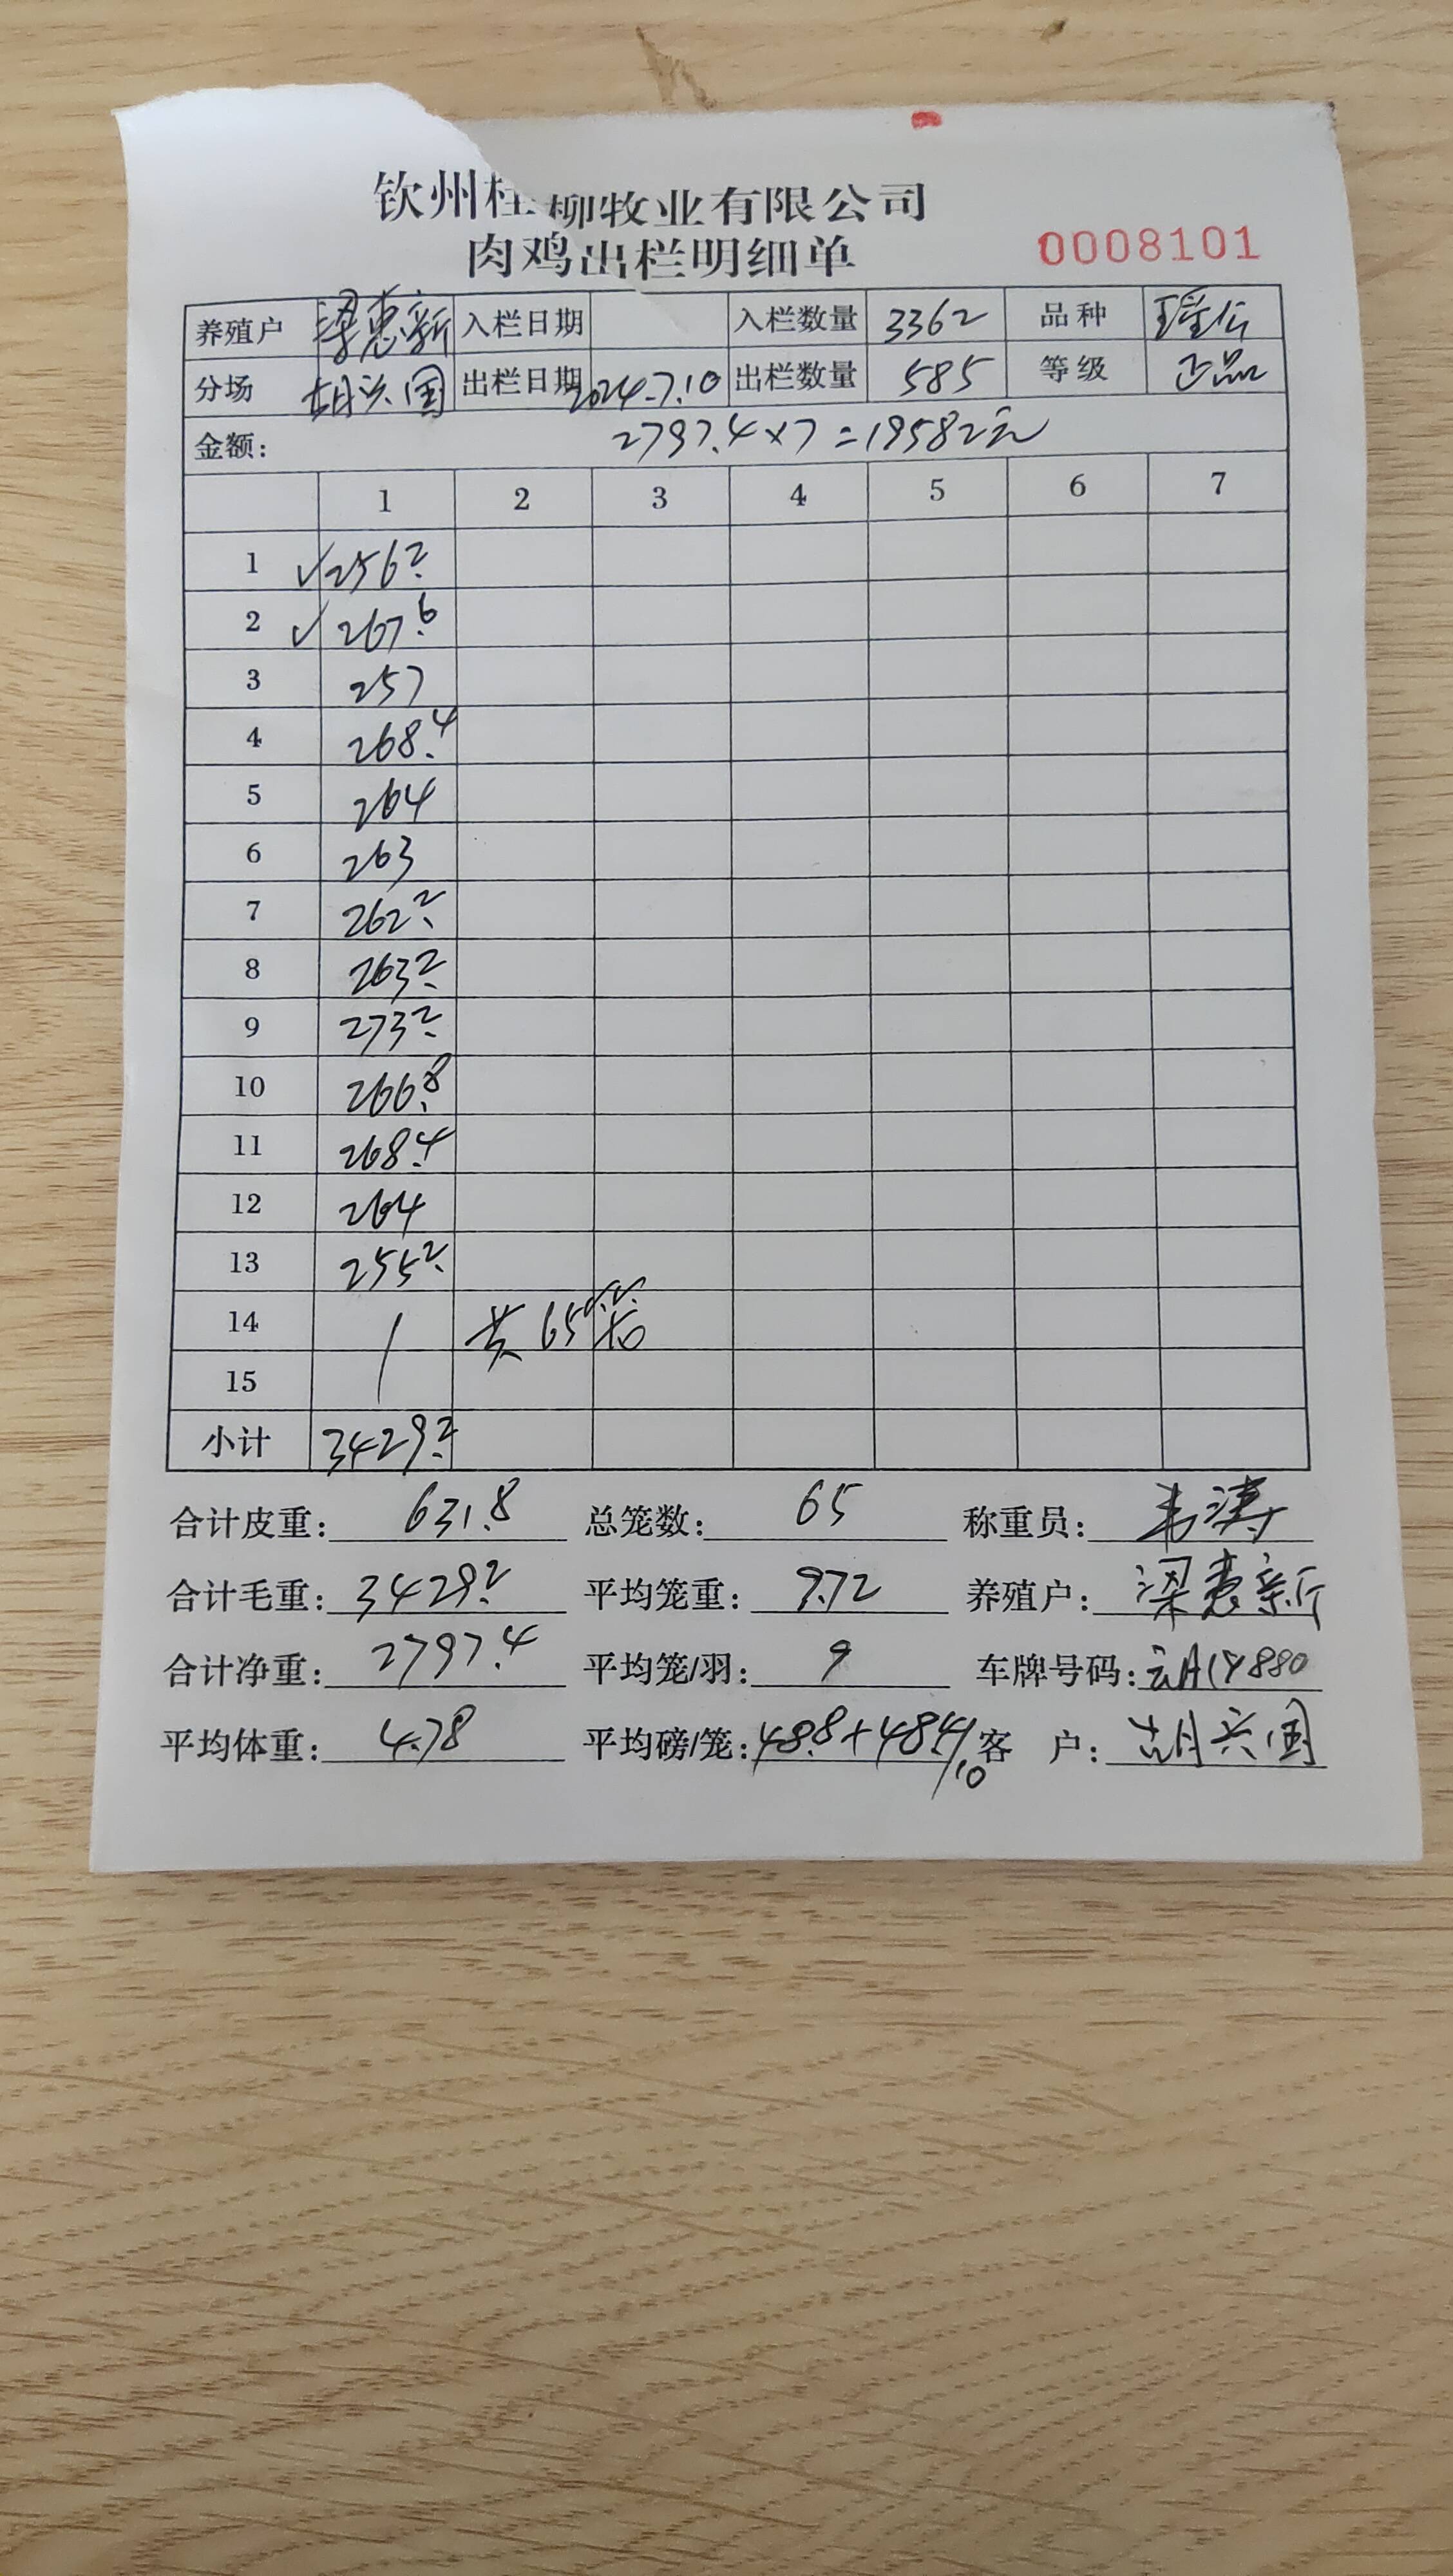 钦州桂柳牧业有限公司
肉鸡出栏明细单 0008101
养殖户 梁惠新 入栏日期 入栏数量 3362 品种
分场 胡兴国 出栏日期 2024.7.10 出栏数量 585 等级 正品
金额: 2797.4×7=19582元
1 2 3 4 5 6 7
1 ✓256.2
2 ✓267.6
3 257
4 268.4
5 264
6 263
7 262.2
8 263.2
9 273.2
10 266.8
11 268.4
12 264
13 255.2
14 / 共65笼
15
小计 3429.2
合计皮重: 631.8 总笼数: 65 称重员: 韦涛
合计毛重: 3429.2 平均笼重: 9.72 养殖户: 梁惠新
合计净重: 2797.4 平均笼/羽: 9 车牌号码:
平均体重: 4.78 平均磅/笼: 48.8+48.4/10 客 户: 胡兴国